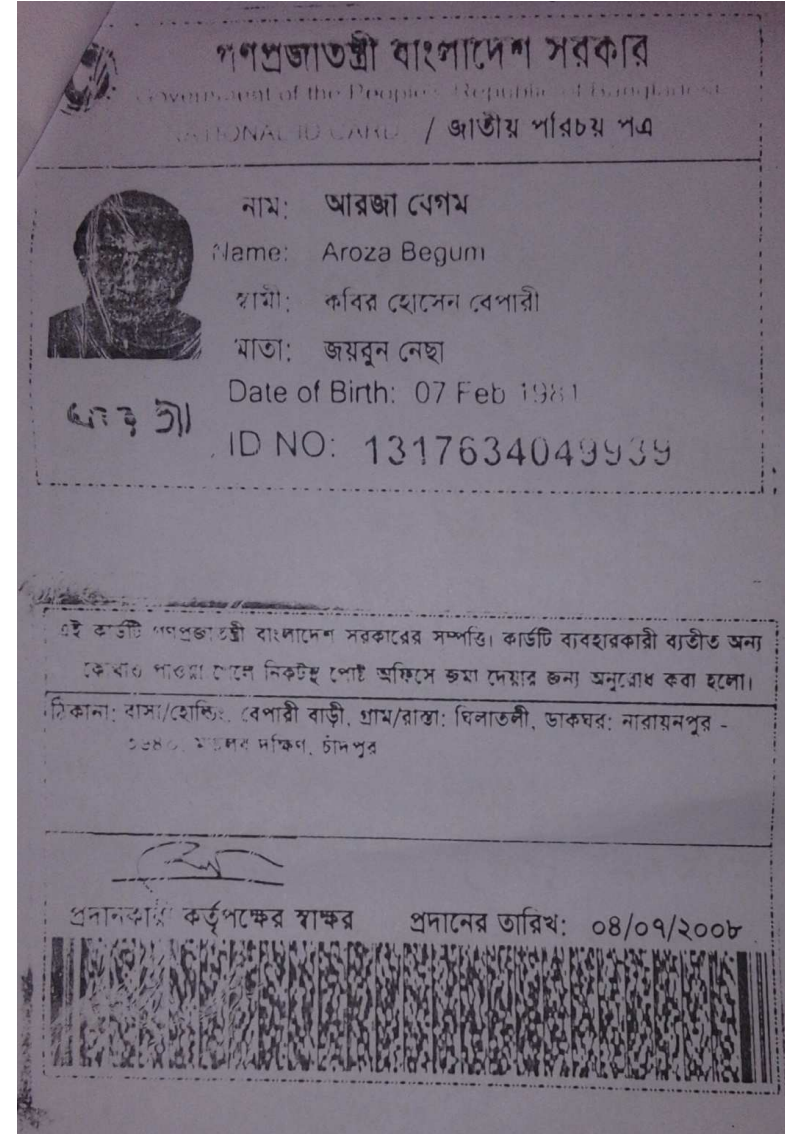 গণপ্রজাতন্ত্রী বাংলাদেশ সরকার
Government of the Peoples Republic of Bangladesh
NATIONAL ID CARD / জাতীয় পরিচয় পত্র
নাম: আরজা বেগম
Name: Aroza Begum
স্বামী: কবির হোসেন বেপারী
মাতা: জয়বুন নেছা
Date of Birth: 07 Feb 1981
ID NO: 1317634049939
এই কার্ডটি গণপ্রজাতন্ত্রী বাংলাদেশ সরকারের সম্পত্তি। কার্ডটি ব্যবহারকারী ব্যতীত অন্য
কোথাও পাওয়া গেলে নিকটস্থ পোষ্ট অফিসে জমা দেয়ার জন্য অনুরোধ করা হলো।
ঠিকানা: বাসা/হোল্ডিং: বেপারী বাড়ী, গ্রাম/রাস্তা: ঘিলাতলী, ডাকঘর: নারায়নপুর -
দক্ষিণ, চাঁদপুর
প্রদানকারী কর্তৃপক্ষের স্বাক্ষর প্রদানের তারিখ: ০৪/০৭/২০০৮